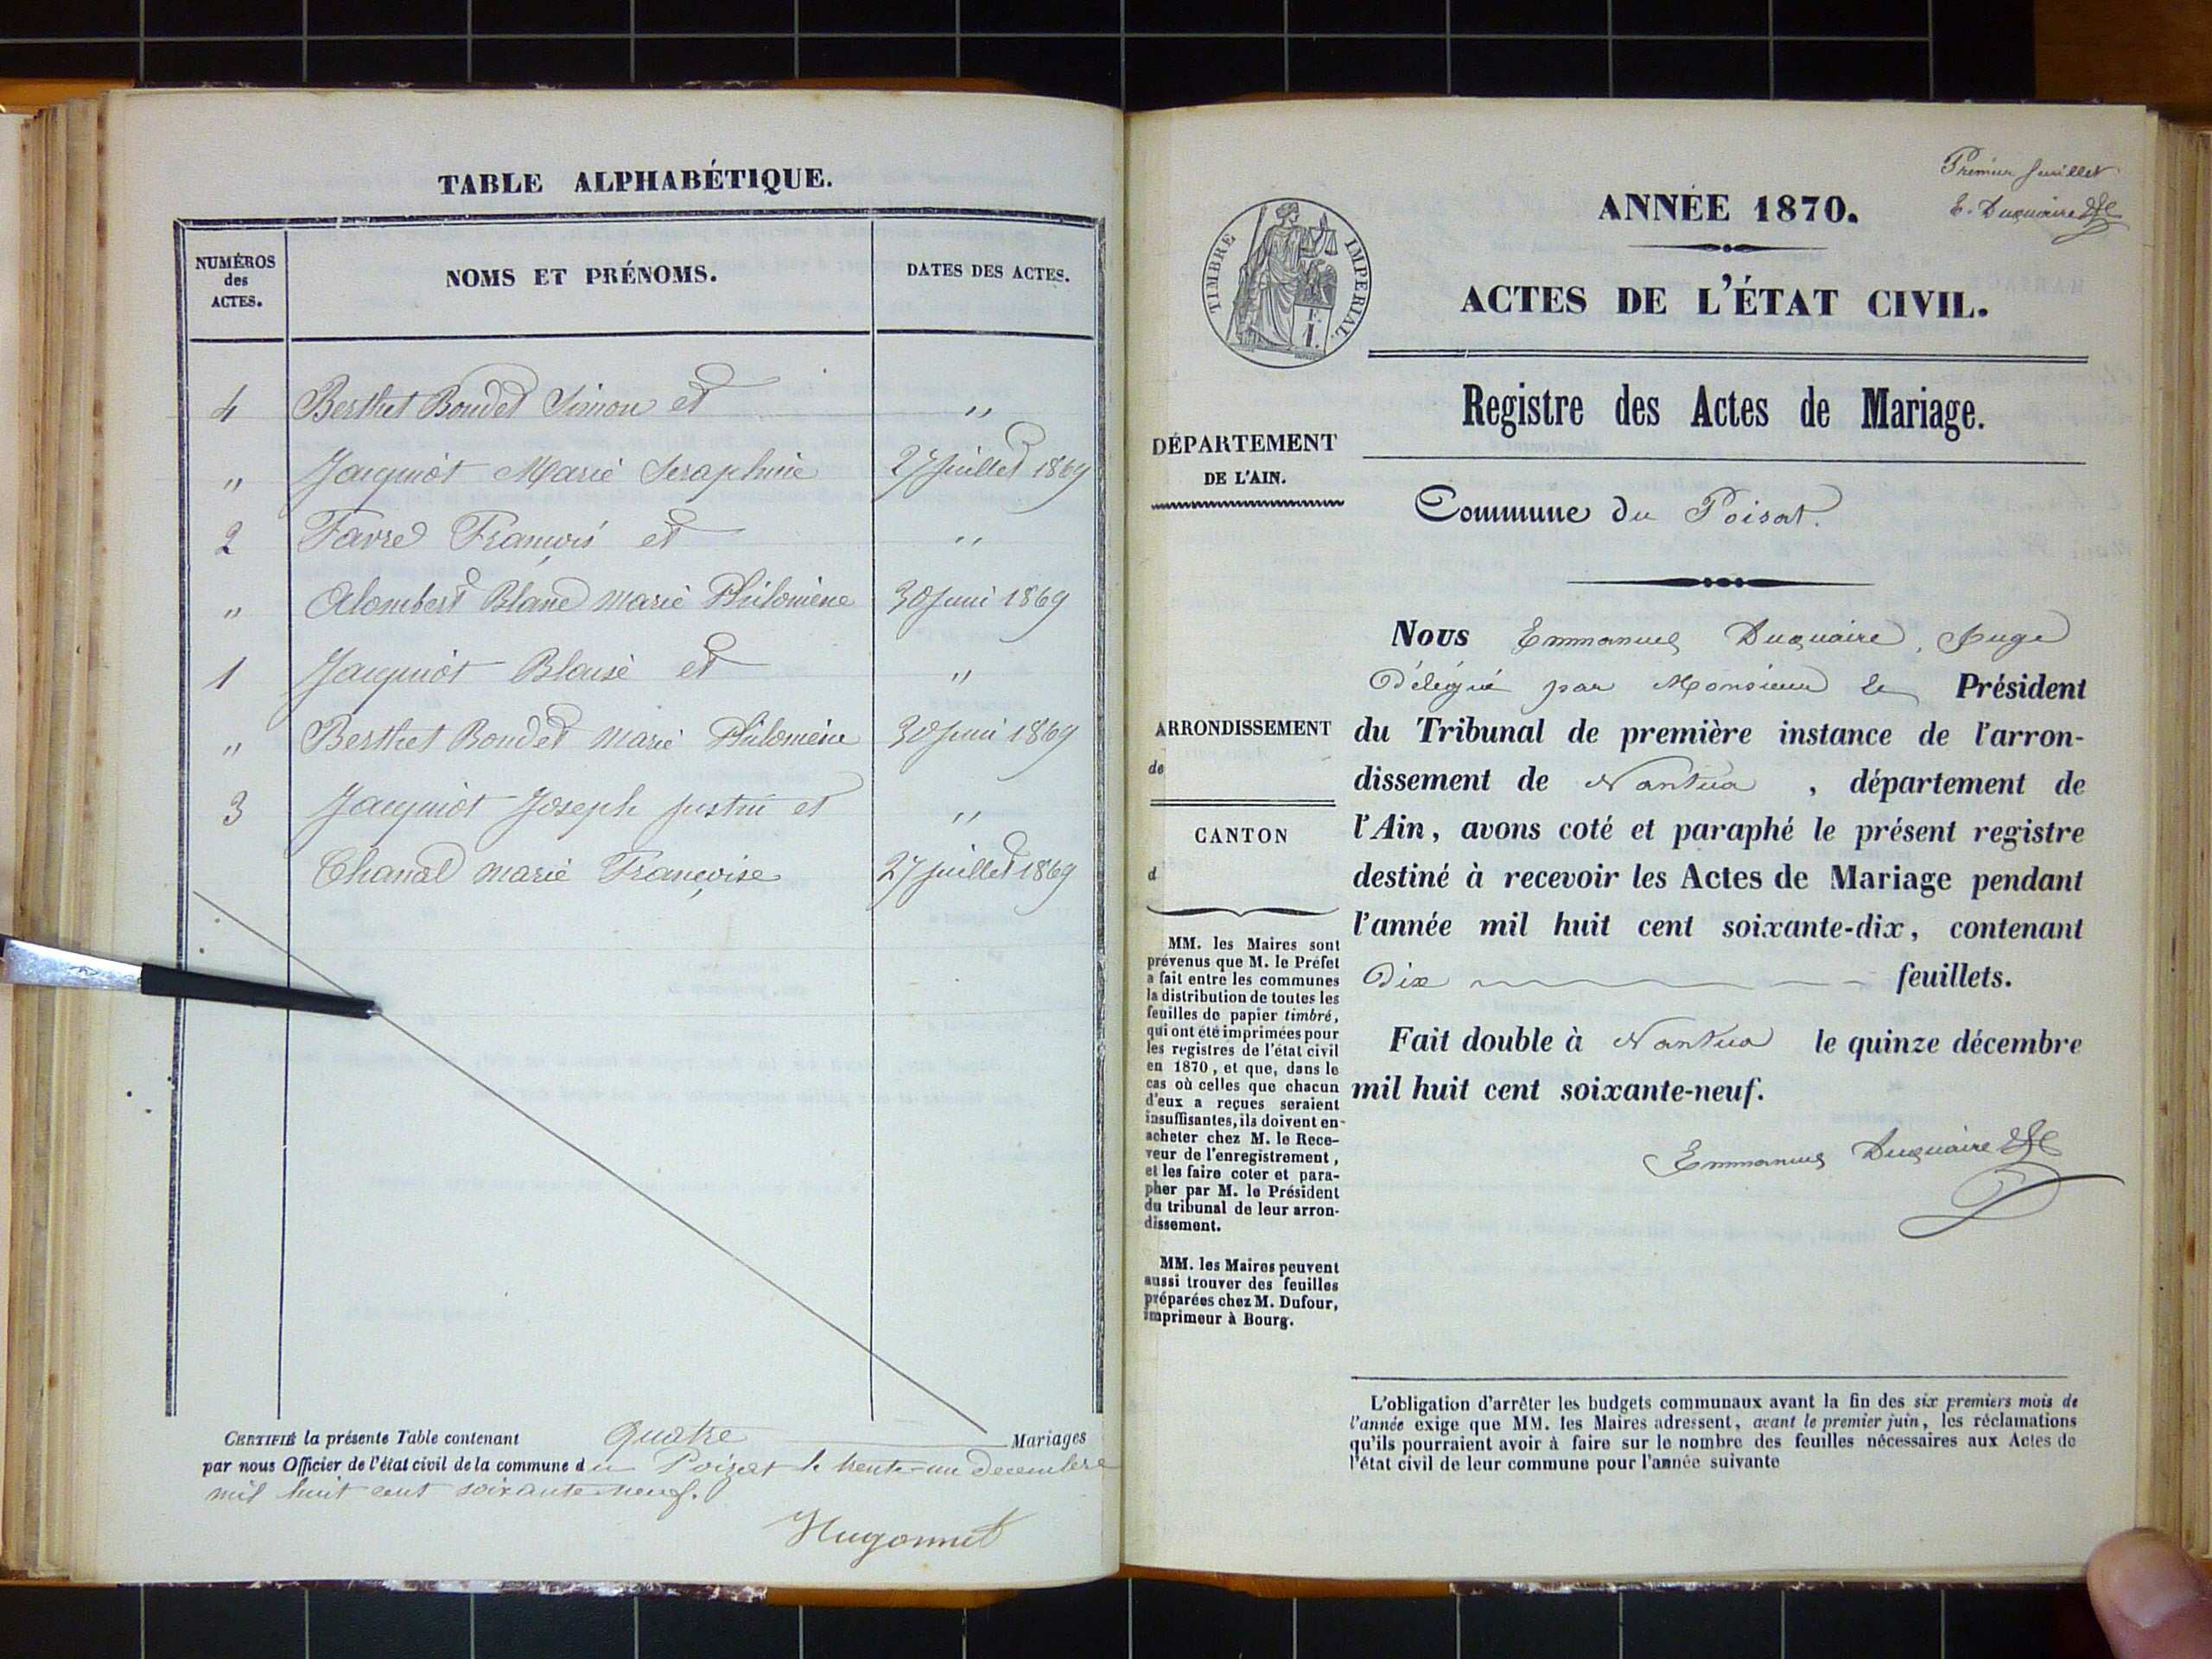 TABLE ALPHABÉTIQUE.
NUMÉROS des ACTES.
NOMS ET PRÉNOMS.
DATES DES ACTES.
4 Berthet Boudet Simon et "
" Jacquiot Marie Seraphine 27 juillet 1869
2 Favre François et "
" Alombert Blanc marie Philomène 30 Juin 1869
1 Jacquiot Blaise et "
" Berthet Boudet marie Philomène 30 Juin 1869
3 Jacquiot Joseph justin et "
Chanal marie Françoise 27 juillet 1869
CERTIFIÉ la présente Table contenant Quatre Mariages
par nous Officier de l'état civil de la commune du Poizat le trente-un Decembre
mil huit cent soixante neuf.
Hugonnet
Premier feuillet
E. Duquaire
TIMBRE IMPERIAL.
E. I.
ANNÉE 1870.
ACTES DE L'ÉTAT CIVIL.
Registre des Actes de Mariage.
DÉPARTEMENT
DE L'AIN.
Commune du Poisat.
ARRONDISSEMENT
de
CANTON
d
MM. les Maires sont
prévenus que M. le Préfet
a fait entre les communes
la distribution de toutes les
feuilles de papier timbré,
qui ont été imprimées pour
les registres de l'état civil
en 1870, et que, dans le
cas où celles que chacun
d'eux a reçues seraient
insuffisantes, ils doivent en
acheter chez M. le Rece-
veur de l'enregistrement,
et les faire coter et para-
pher par M. le Président
du tribunal de leur arron-
dissement.
MM. les Maires peuvent
aussi trouver des feuilles
préparées chez M. Dufour,
imprimeur à Bourg.
Nous Emmanuel Duquaire, Juge
Délégué par Monsieur le Président
du Tribunal de première instance de l'arron-
dissement de Nantua, département de
l'Ain, avons coté et paraphé le présent registre
destiné à recevoir les Actes de Mariage pendant
l'année mil huit cent soixante-dix, contenant
Dix feuillets.
Fait double à Nantua le quinze décembre
mil huit cent soixante-neuf.
Emmanuel Duquaire
L'obligation d'arrêter les budgets communaux avant la fin des six premiers mois de
l'année exige que MM. les Maires adressent, avant le premier juin, les réclamations
qu'ils pourraient avoir à faire sur le nombre des feuilles nécessaires aux Actes de
l'état civil de leur commune pour l'année suivante